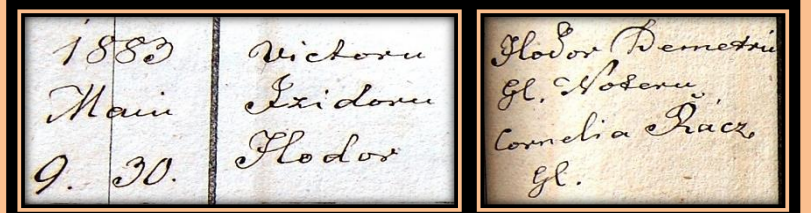 1883
Maiu
9. 30.
Victoru
Izidoru
Flodor
Flodor Demetriu
Gl. Noteru,
Cornelia Rácz,
Gl.